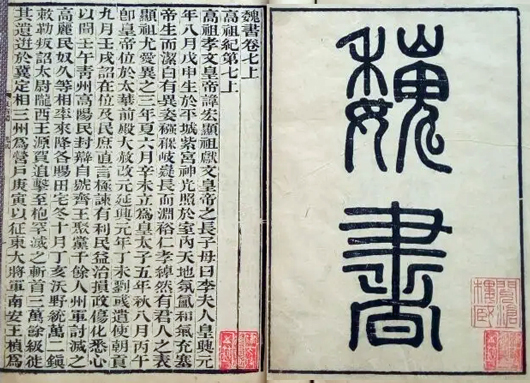 魏書
魏書卷七上
高祖紀第七上
高祖孝文皇帝諱宏顯祖獻文皇帝之長子母曰李夫人皇興元
年八月戊申生於平城紫宮神光照於室內天地氛氳和氣充塞
帝生而潔白有異姿襁褓岐嶷長而淵裕仁孝綽然有君人之表
顯祖尤愛異之三年夏六月辛未立爲皇太子五年秋八月丙午
卽皇帝位於太華前殿大赦改元延興元年丁未劉彧遣使朝貢
九月壬戌詔在位及民庶直言極諫有利民益治損政傷化悉心
以聞壬午青州高陽民封辯自號齊王聚黨千餘人州軍討滅之
高麗民奴久等相率來降各賜田宅冬十月丁亥沃野統萬二鎮
敕勒叛詔太尉隴西王源賀追擊至枹罕滅之斬首三萬餘級徙
其遺迸於冀定相三州爲營戶庚寅以征東大將軍南安王楨爲